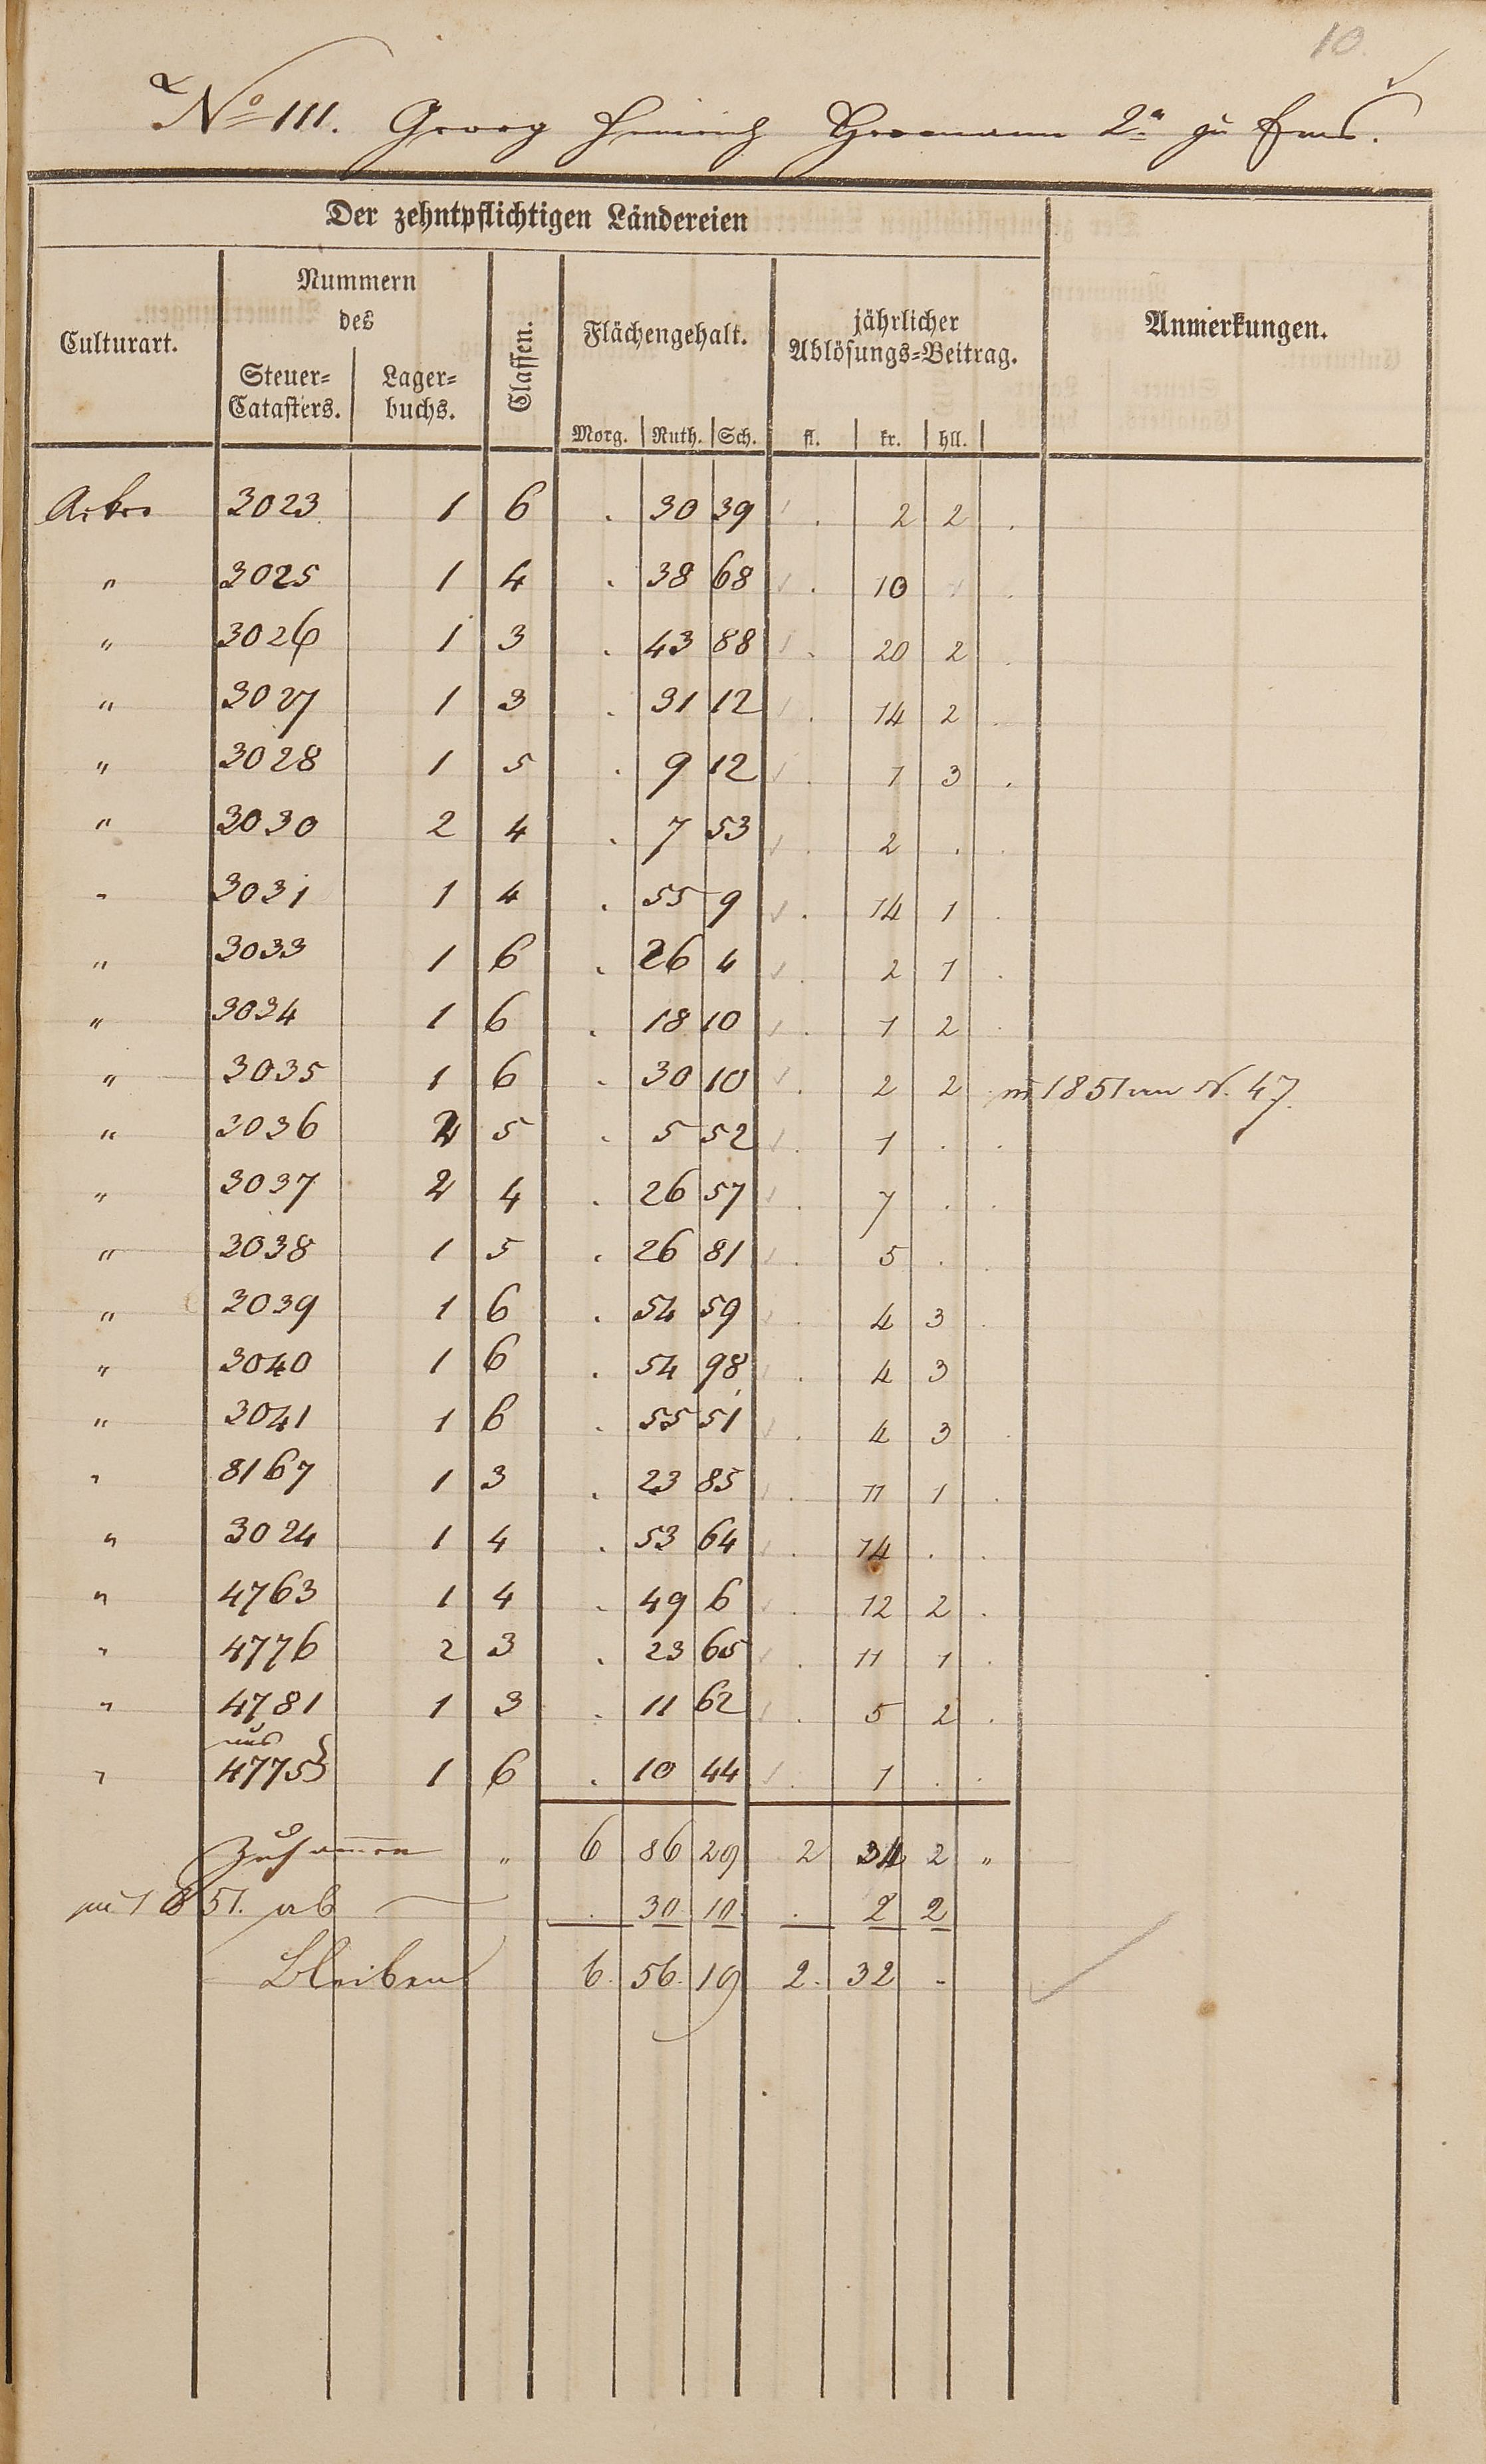 10.
No III. Georg Heinrich 2r zu Ems.
Der zehntpflichtigen Ländereien
Culturart.
Nummern
des
Steuer=
Catasters.
Lager=
buchs.
Classen.
Flächengehalt.
Morg. Ruth. Sch.
jährlicher
Ablösungs=Beitrag.
fl. kr. hll.
Anmerkungen.
Acker 3023 1 6 . 30 39 . 2 2 .
" 3025 1 4 . 38 68 . 10 . .
" 3026 1 3 . 43 88 . 20 2 .
" 3027 1 3 . 31 12 . 14 2 .
" 3028 1 5 . 9 12 . 1 3 .
" 3030 2 4 . 7 53 . 2 . .
" 3031 1 4 . 55 9 . 14 1 .
" 3033 1 6 . 26 4 . 2 1 .
" 3034 1 6 . 18 10 . 1 2 .
" 3035 1 6 . 30 10 . 2 2 . 1851 an N. 47.
" 3036 2 5 . 5 52 . 1 . .
" 3037 2 4 . 26 57 . 7 . .
" 3038 1 5 . 26 81 . 5 . .
" 3039 1 6 . 54 59 . 4 3 .
" 3040 1 6 . 54 98 . 4 3
" 3041 1 6 . 55 51 . 4 3 .
" 8167 1 3 . 23 85 . 11 1 .
" 3024 1 4 . 53 64 . 14 . .
" 4763 1 4 . 49 6 . 12 2 .
" 4776 2 3 . 23 65 . 11 1 .
" 4781 1 3 . 11 62 . 5 2 .
aus
" 4775} 1 6 . 10 44 . 1 . .
Zusammen " 6 86 29 2 34 2 "
1851. ab . 30 10 . 2 2
Bleiben 6. 56. 19 2. 32 -